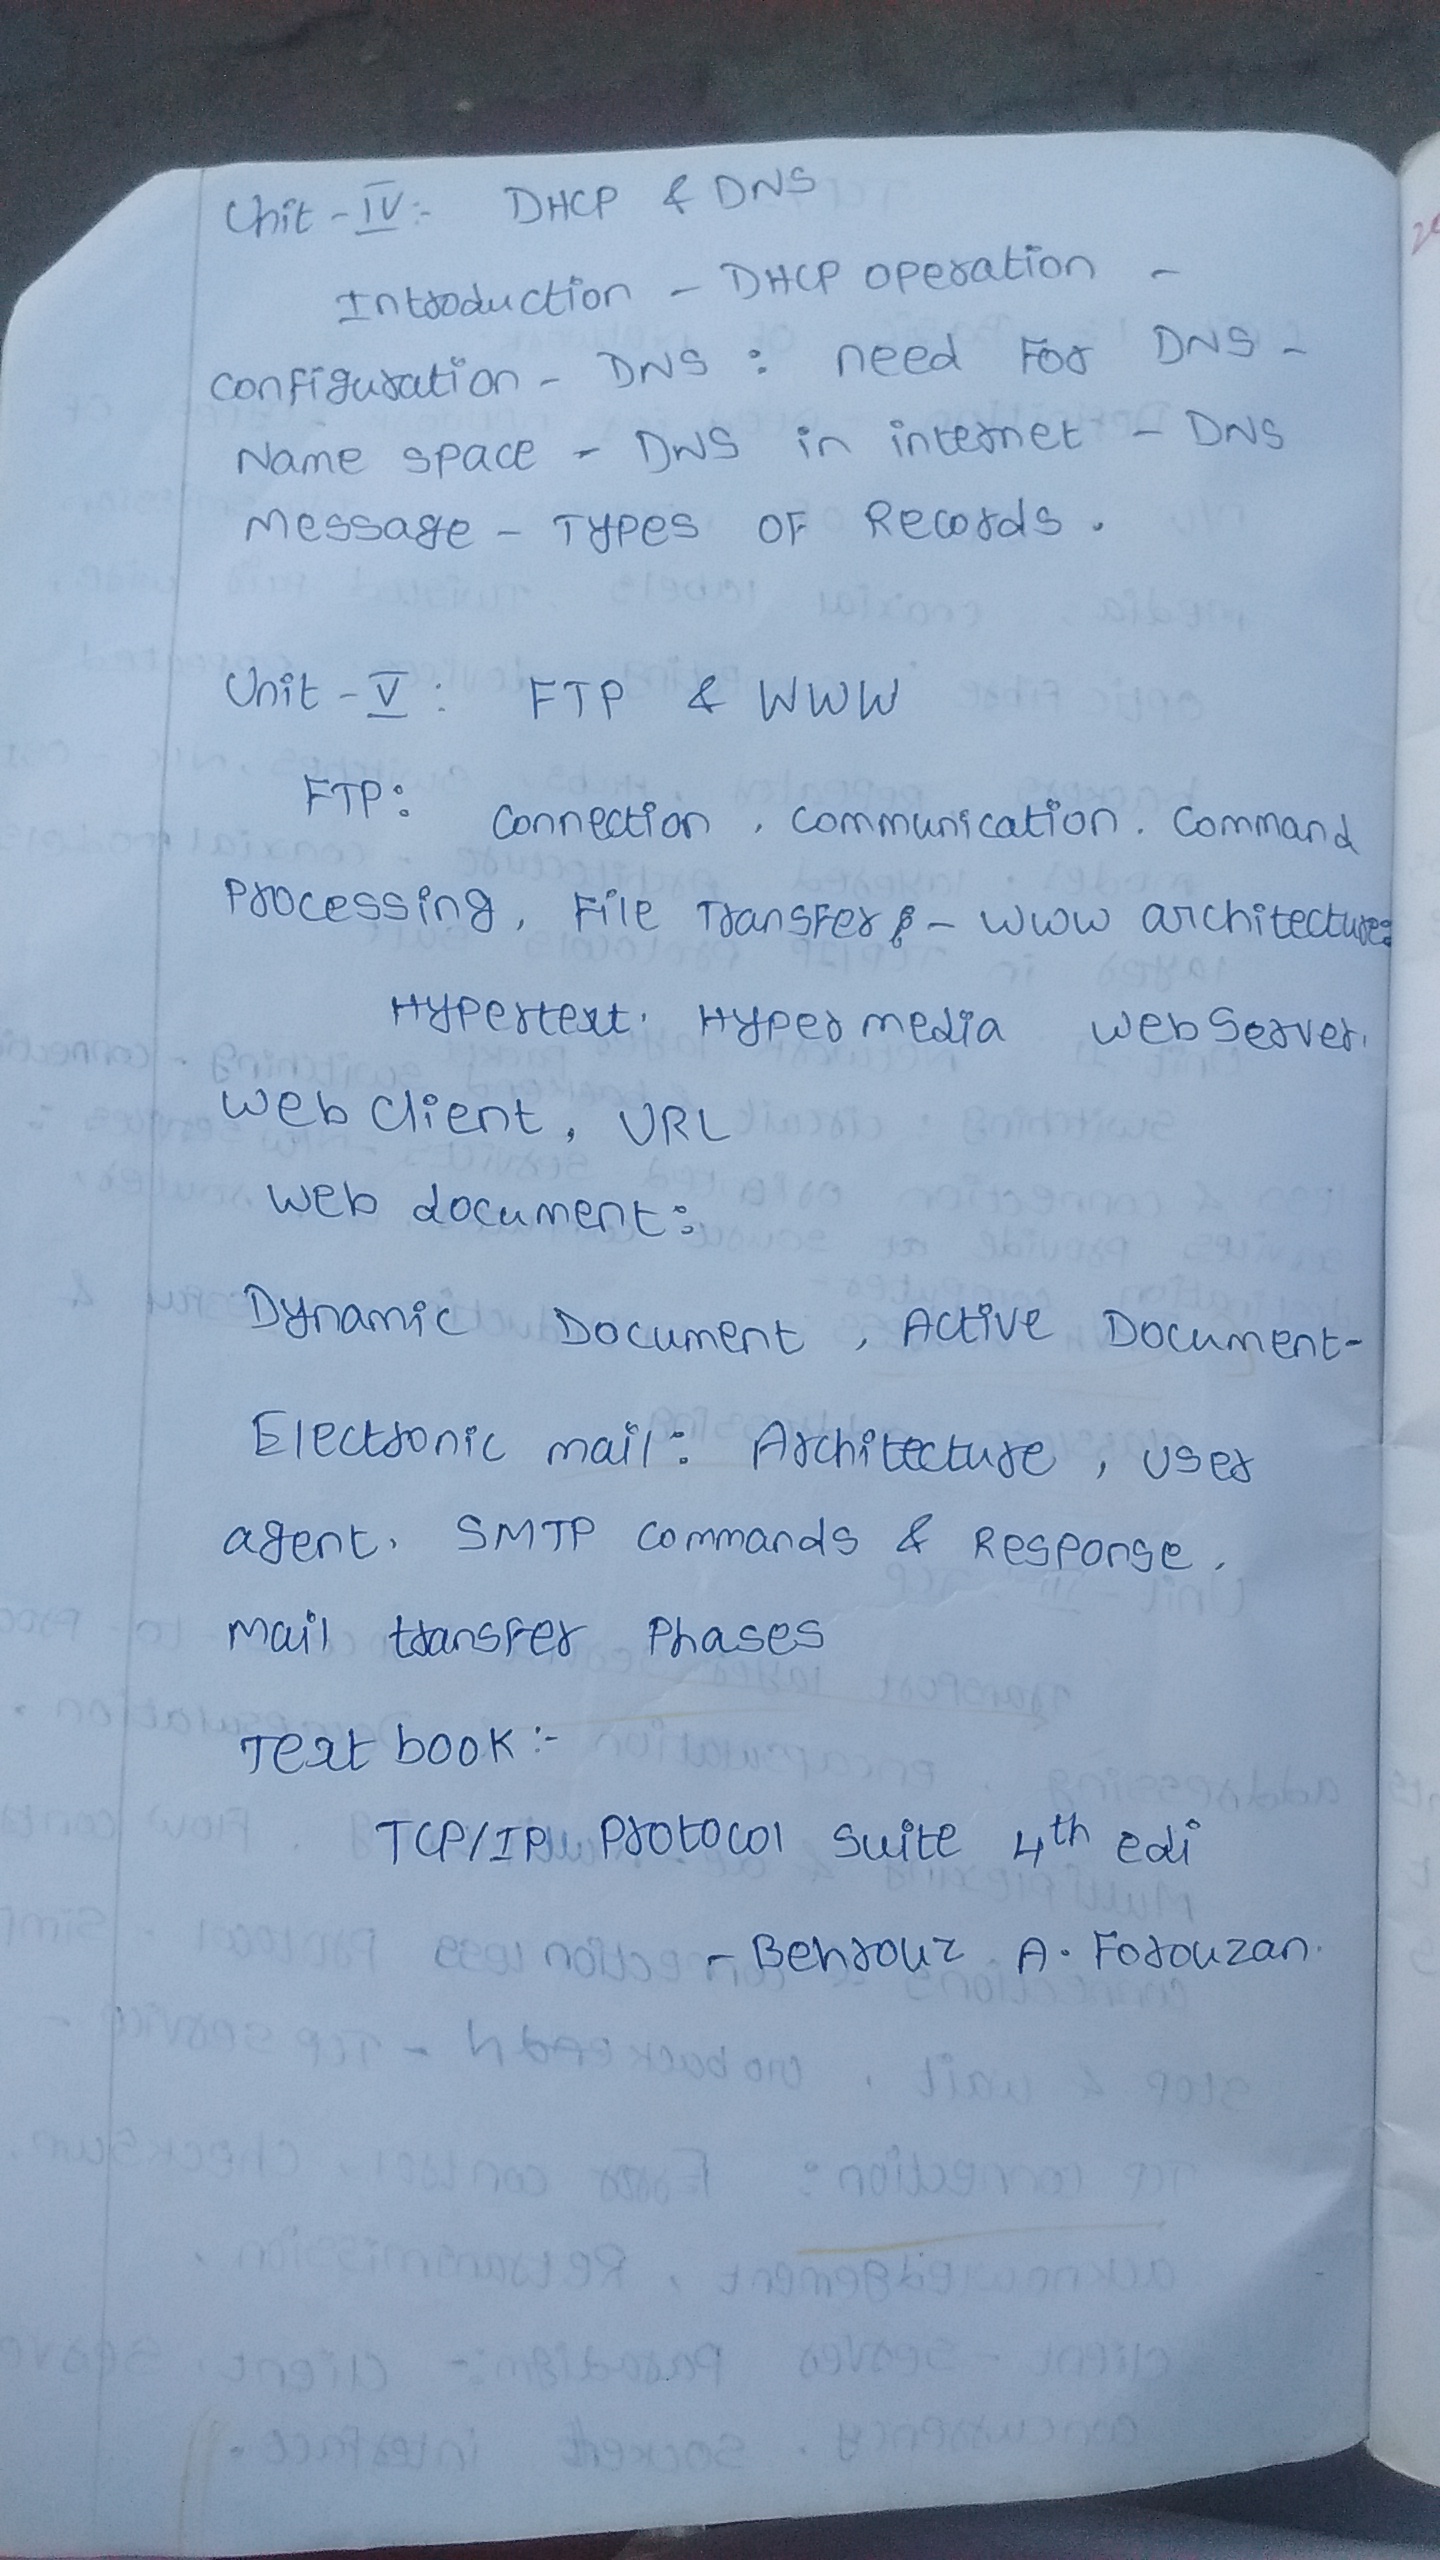 Unit - IV :- DHCP & DNS
Introduction - DHCP operation -
configuration - DNS : need For DNS -
Name space - DNS in internet - DNS
Message - Types OF Records.
Unit - V : FTP & WWW
FTP: Connection, communication. Command
Processing, File Transfer - WWW architecture:
Hypertext. Hypermedia Web Server,
Web Client, URL
Web document:
Dynamic Document, Active Document-
Electronic mail: Architecture, User
agent, SMTP Commands & Response,
Mail transfer Phases
Text book :-
TCP/IP Protocol Suite 4th edi
- Behrouz A. Forouzan.